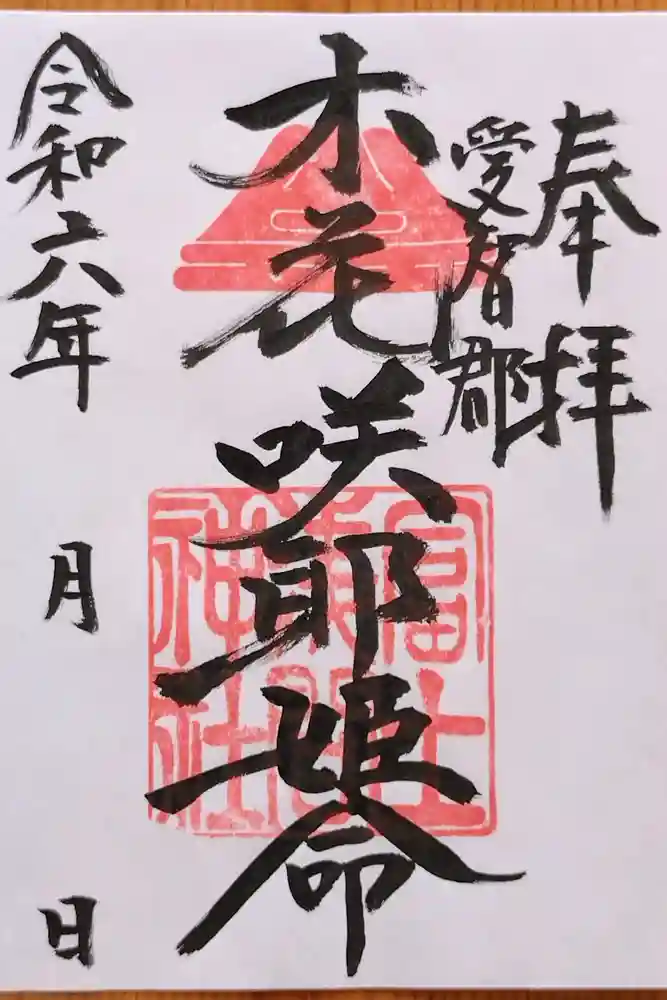 奉拝
愛智郡
木花咲耶姫命
富士
神社
令和六年 月 日